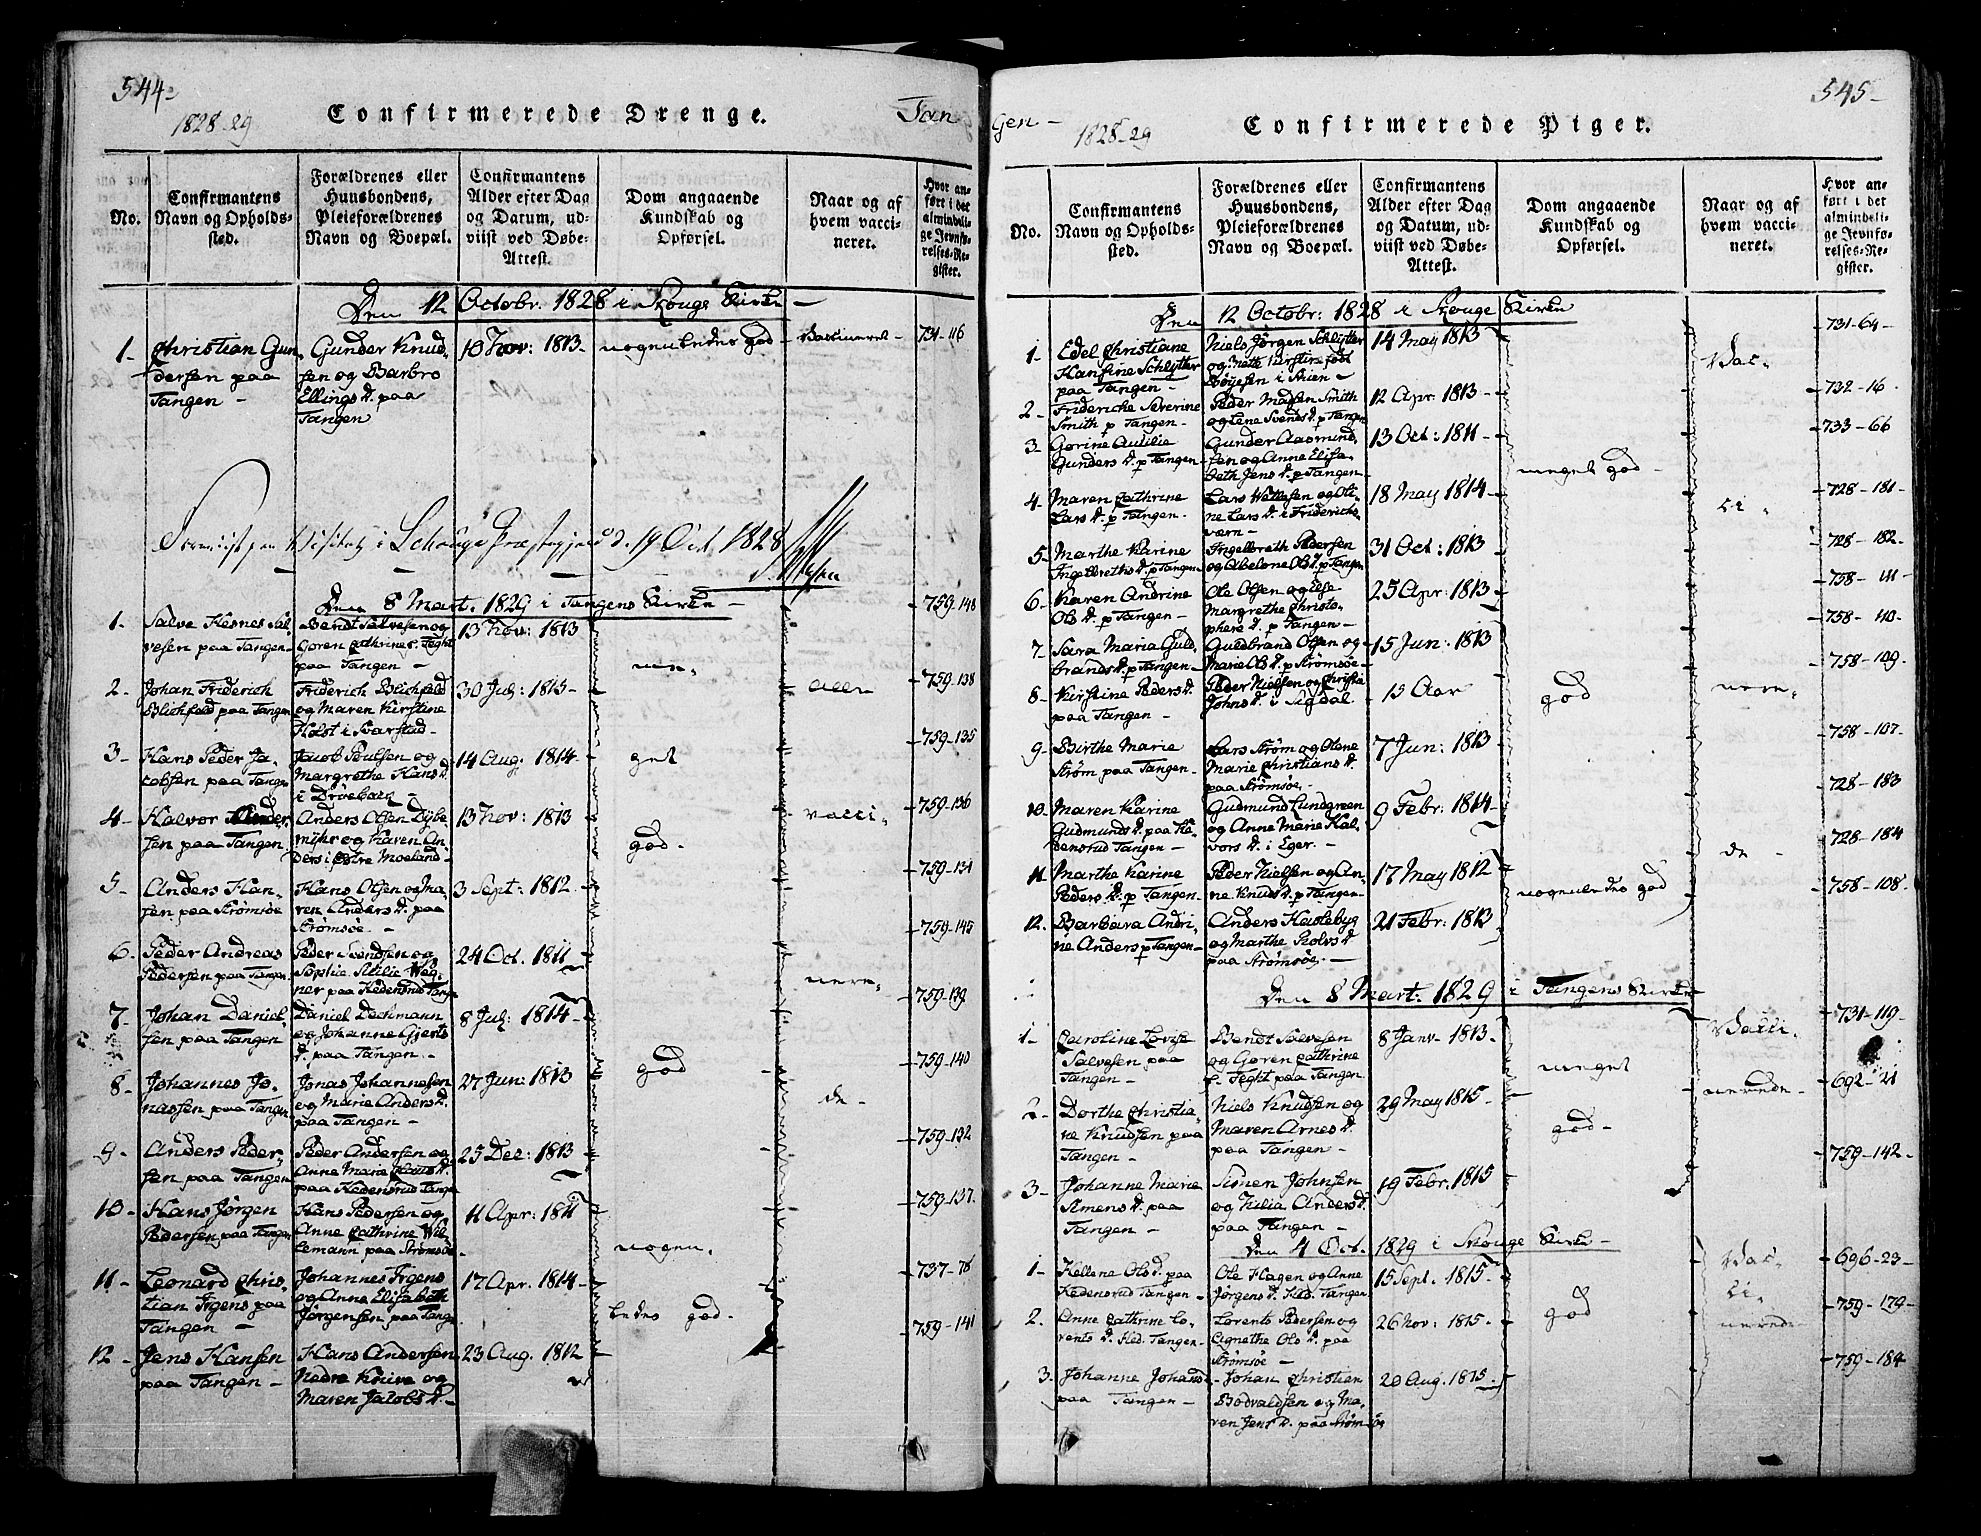 544-
1828-29
Confirmerede Drenge.
Tan
No.
Confirmantens
Navn og Opholds-
sted.
Forældrenes eller
Huusbondens,
Pleieforældrenes
Navn og Boepæl.
Confirmantens
Alder efter Dag
og Datum, ud-
viist ved Døbe-
Attest.
Dom angaaende
Kundskab og
Opførsel.
Naar og af
hvem vacci-
neret.
Hvor an-
ført i det
almindeli-
ge Jevnfø-
relses-Re-
gister.
Den 12 Octobr. 1828 i Skouge Kirke -
1- Christian Gun
dersen paa
Tangen -
Gunder Knud-
sen og Barbro
Ellings D. paa
Tangen
10 Nov: 1813-
nogenledes god
Vaccineret-
731-116
Visitatz i Schouge Præstegjeld d. 19 Oct. 1828
Den 8 Mart. 1829 i Tangens Kirke -
1- Salve Sal-
vesen paa Tangen-
Bendt Salvesen og
Goren Cathrine f. Feght
paa Tangen -
13 Nov: 1813
759-148
2- Johan Friderich
Blichfeld paa Tangen
Friderich Blichfeld
og Maren Kirstine
Holst i Svarstad-
30 Jul: 1815-
759-138
3- Hans Peder Ja-
cobsen paa Tangen
Jacob Poulsen og
Margrethe Hans D.
i Drøebach -
14 Aug. 1814-
759-135
4- Halvor Ander-
sen paa Tangen
Anders Olsen
og Karen An
ders i Moeland-
13 Nov: 1813
759-136
5- Anders Han-
sen paa Strømsøe
Hans Olsen og Ma-
ren Anders D. paa
Strømsøe -
3 Sept: 1812-
759-134
6- Peder Andreas
Pedersen paa Tangen
Peder Svendsen og
Sophie Weg-
ner paa Hedensrud Tange
24 Oct. 1811
759-145
7- Johan Daniel-
sen paa Tangen
Daniel Dechmann
og Johanne Gjerts
D. paa Tangen -
8 Jul: 1814-
759-139
8- Johannes Jo-
nassen paa Tangen
Jonas Johannesen
og Marie Anders D.
paa Tangen -
27 Jun: 1813
759-140
9- Anders Peder-
sen paa Tangen
Peder Andersen og
Anne Marie D.
paa Hedensrud Tangen
25 Dec: 1813
759-132
10- Hans Jörgen
Pedersen paa Tangen
Hans Pedersen og
Anne Cathrine Wil-
lemann paa Strømsøe
11 Apr: 1811
759-137.
11- Leonard Chris-
tian Irgens paa
Tangen -
Johannes Irgens
og Anne Elisabeth
Jörgensen paa Tangen
17 Apr. 1814-
737-76
12- Jens Hansen
paa Tangen -
Hans Andersen
Nedre Knive og
Maren Jacobs D.-
23 Aug. 1812
759-141
me-
get
god-
god
nogen-
ledes god-
Alle
vacci-
nere-
de -
545-
gen-
1828-29
Confirmerede Piger.
No.
Confirmantens
Navn og Opholds-
sted.
Forældrenes eller
Huusbondens,
Pleieforældrenes
Navn og Boepæl.
Confirmantens
Alder efter Dag
og Datum, ud-
viist ved Døbe-
Attest.
Dom angaaende
Kundskab og
Opførsel.
Naar og af
hvem vacci-
neret.
Hvor an-
ført i det
almindeli-
ge Jevnfø-
relses-Re-
gister.
Den 12 Octobr: 1828 i Skouge Kirke
1- Edel Christiane
Hansine Schlytter
paa Tangen -
Niels Jörgen Schlytter
og Mette Kirstine født
Böyesen i Skien -
14 May 1813
731-64-
2- Frideriche Severine
Smith p Tangen -
Peder Madsen Smith
og Lene Svends D. p Tangen
12 Apr. 1813-
732-16.
3- Gorine Aurilie
Gunders D. p Tangen -
Gunder Aasmund-
sen og Anne Elisa-
beth Jens D. p Tangen
13 Oct: 1811-
733-66
4- Maren Cathrine
Lars D. p Tangen-
Lars Wettesen og Oli-
ne Lars D. i Friderichs-
værn -
18 May 1814
728-181-
5- Marthe Karine
Ingelbreths D. p Tangen
Ingelbreth Pedersen
og Abelone Ols D. p Tangen
31 Oct: 1813
728-182
6- Karen Andrine
Ols D. p Tangen -
Ole Olsen og Else
Margrethe Christo-
phers D. p Tangen -
25 Apr: 1813
758-111-
7- Sara Maria Guld-
brands D. p Tangen-
Guldbrand Olsen og
Marie Ols D. p Strømsøe-
15 Jun: 1813
758-110-
8- Kirstine Peders D.
paa Tangen -
Peder Nielsen og Christi
Johns D. i Sigdal-
15 Aar
758-109-
9- Birthe Marie
Strøm paa Tangen-
Lars Strøm og Olene
Marie Christians D.
paa Strømsøe-
7 Jun: 1813
758-107-
10- Maren Karine
Gudmunds D. paa He-
densrud Tangen -
Gudmund Lundgreen
og Anne Marie Hal-
vors D: i Eger. -
9 Febr: 1814
728-183
11- Marthe Karine
Peders D. p Tangen-
Peder Nielsen og An-
ne Knuds D. p Tangen-
17 May 1812
728-184
12- Barbara Andri-
ne Anders p Tangen-
Anders Haslebyg
og Marthe Rolvs D
paa Strømsøe. -
21 Febr: 1813
758-108-
meget god-
god
nogenledes god
Vac-
ci-
nere-
de -
Den 8 Mart: 1829 i Tangens Kirke
1- Caroline Lovise
Salvesen paa
Tangen -
Bendt Salvesen
og Goren Cathrine
f. Feght paa Tangen
8 Janv. 1813-
731-119-
2- Dorthe Christia-
ne Knudsen paa
Tangen-
Niels Knudsen og
Maren Arnes D.
paa Tangen -
29 May 1815-
692-21
3- Johanne Marie
Simens D. paa
Tangen -
Simen Johnsen
og Kilia Anders D.
paa Tangen -
19 Febr. 1815
759-142-
meget
god-
Vacci-
nerede
Den 4 Oct. 1829 i Skouge Kirke -
1- Hellene Ols D. paa
Hedensrud Tangen -
Ole Hagen og Anne
Jörgens D. Hed. Tangen
15 Sept. 1815-
696-23-
2. Anne Cathrine Lo-
rents D. Hed. Tangen-
Lorents Pedersen og
Agnethe Ols D. paa
Strømsøe -
26 Nov: 1815-
759-179-
3. Johanne Johans D
paa Tangen -
Johan Christian
Bodvaldsen og Ma-
ren Jens D. paa Strømsøe
20 Aug. 1815.
759-184
god
Vac-
ci-
nerede